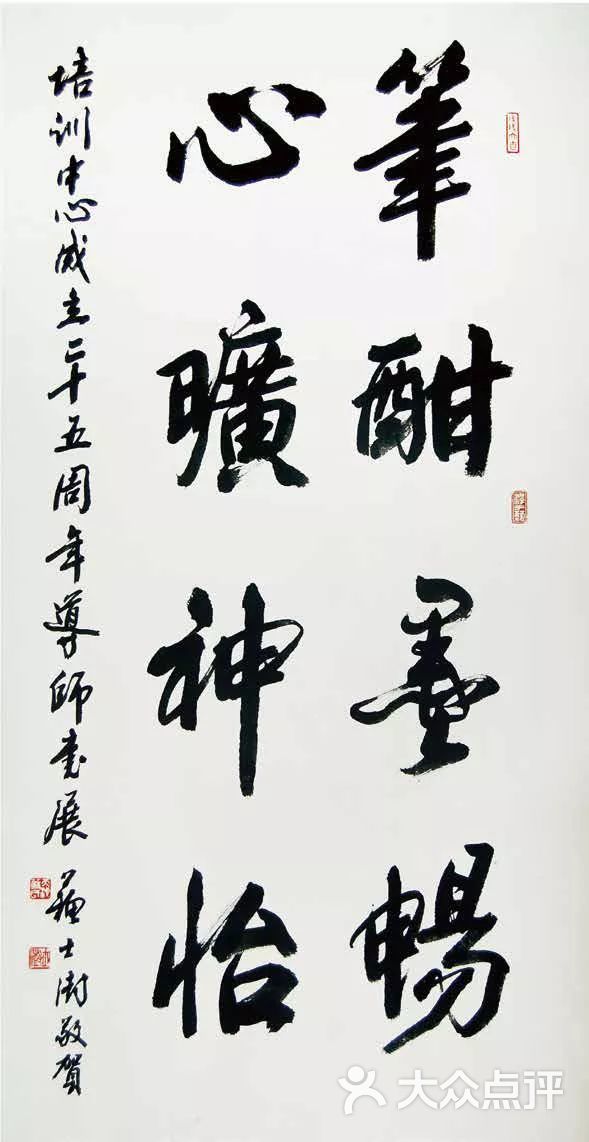 筆酣墨暢
心曠神怡
培训中心成立二十五周年導師书展
苏士澍敬賀
大众点评